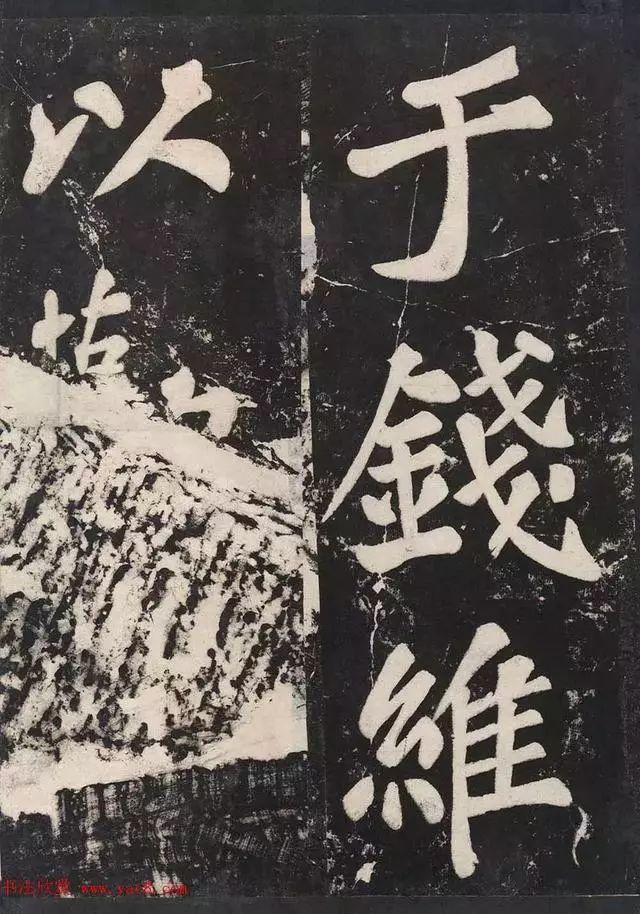 于錢維
以
书法欣赏 www.yac8.com